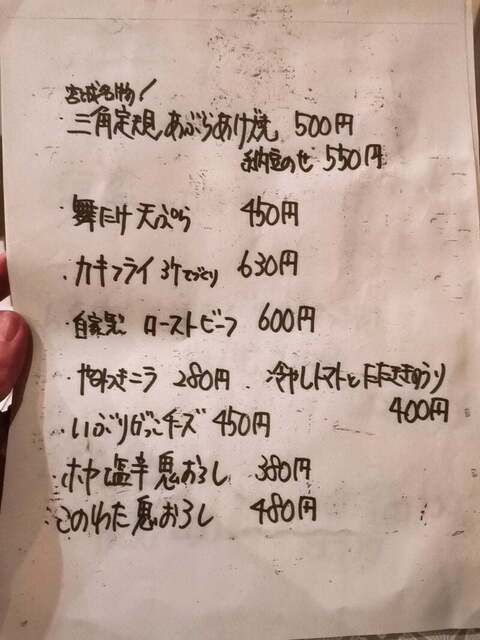 宮城名物!
・三角定規あぶらあげ焼 500円
納豆のせ 550円
・舞たけ天ぷら 450円
・カキフライ 3ケ てづくり 630円
・自家製 ローストビーフ 600円
・やみつきニラ 280円 ・冷やしトマトとたたききゅうり
400円
・いぶりがっこチーズ 450円
・ホヤ塩辛鬼おろし 380円
・このわた鬼おろし 480円